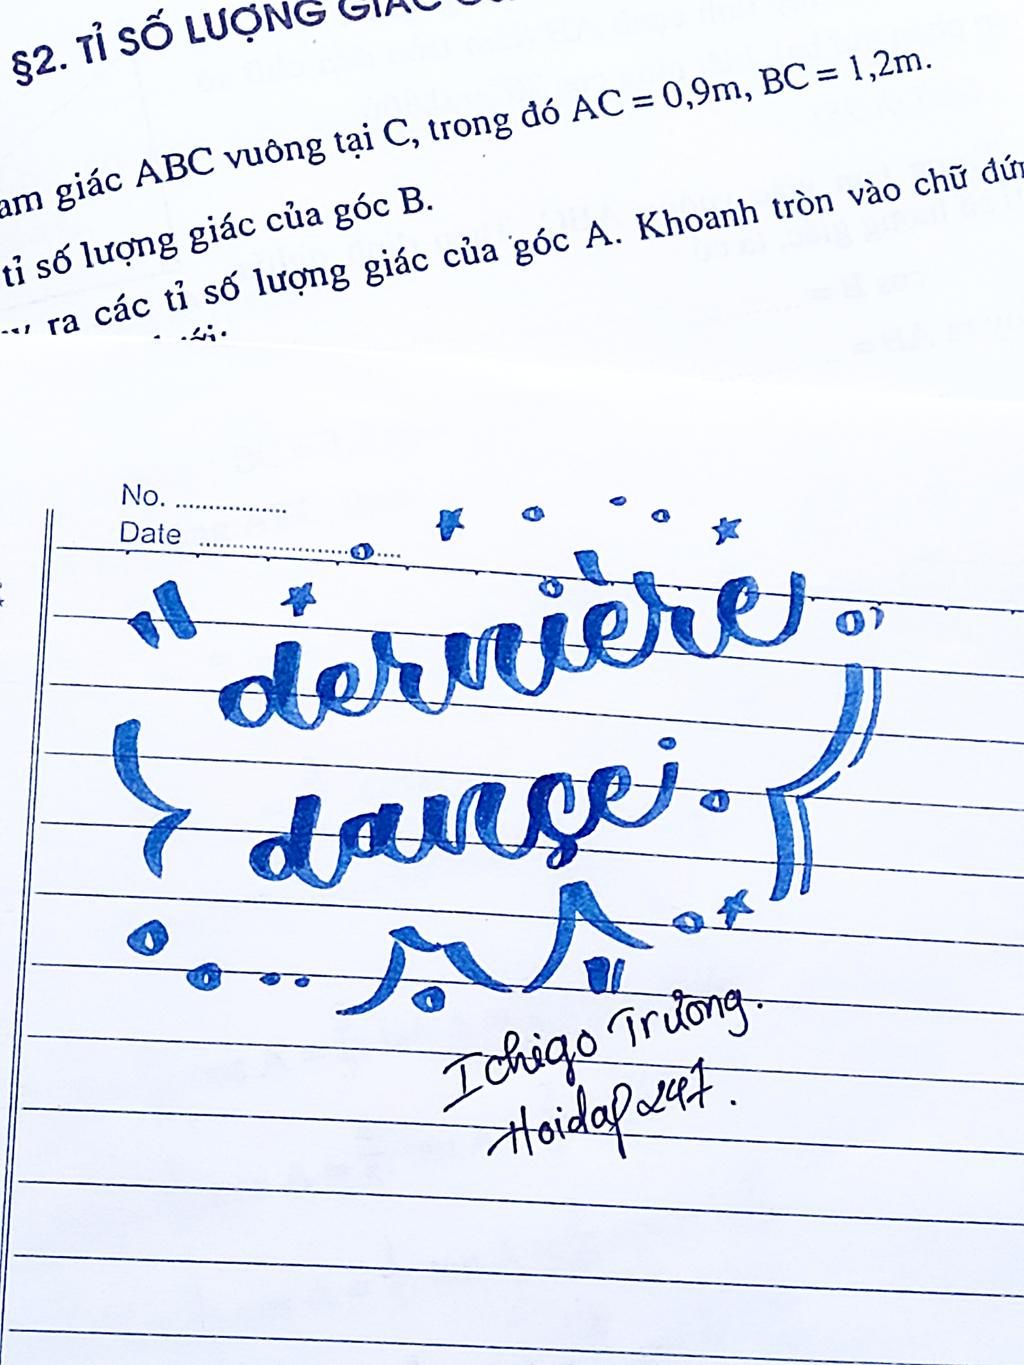 §2. TỈ SỐ LƯỢNG GIÁC
am giác ABC vuông tại C, trong đó AC = 0,9m, BC = 1,2m.
tỉ số lượng giác của góc B.
ra các tỉ số lượng giác của góc A. Khoanh tròn vào chữ đứn
No. ................
Date ............................
"dernière
dance
Ichigo Trương.
Hoidap247.